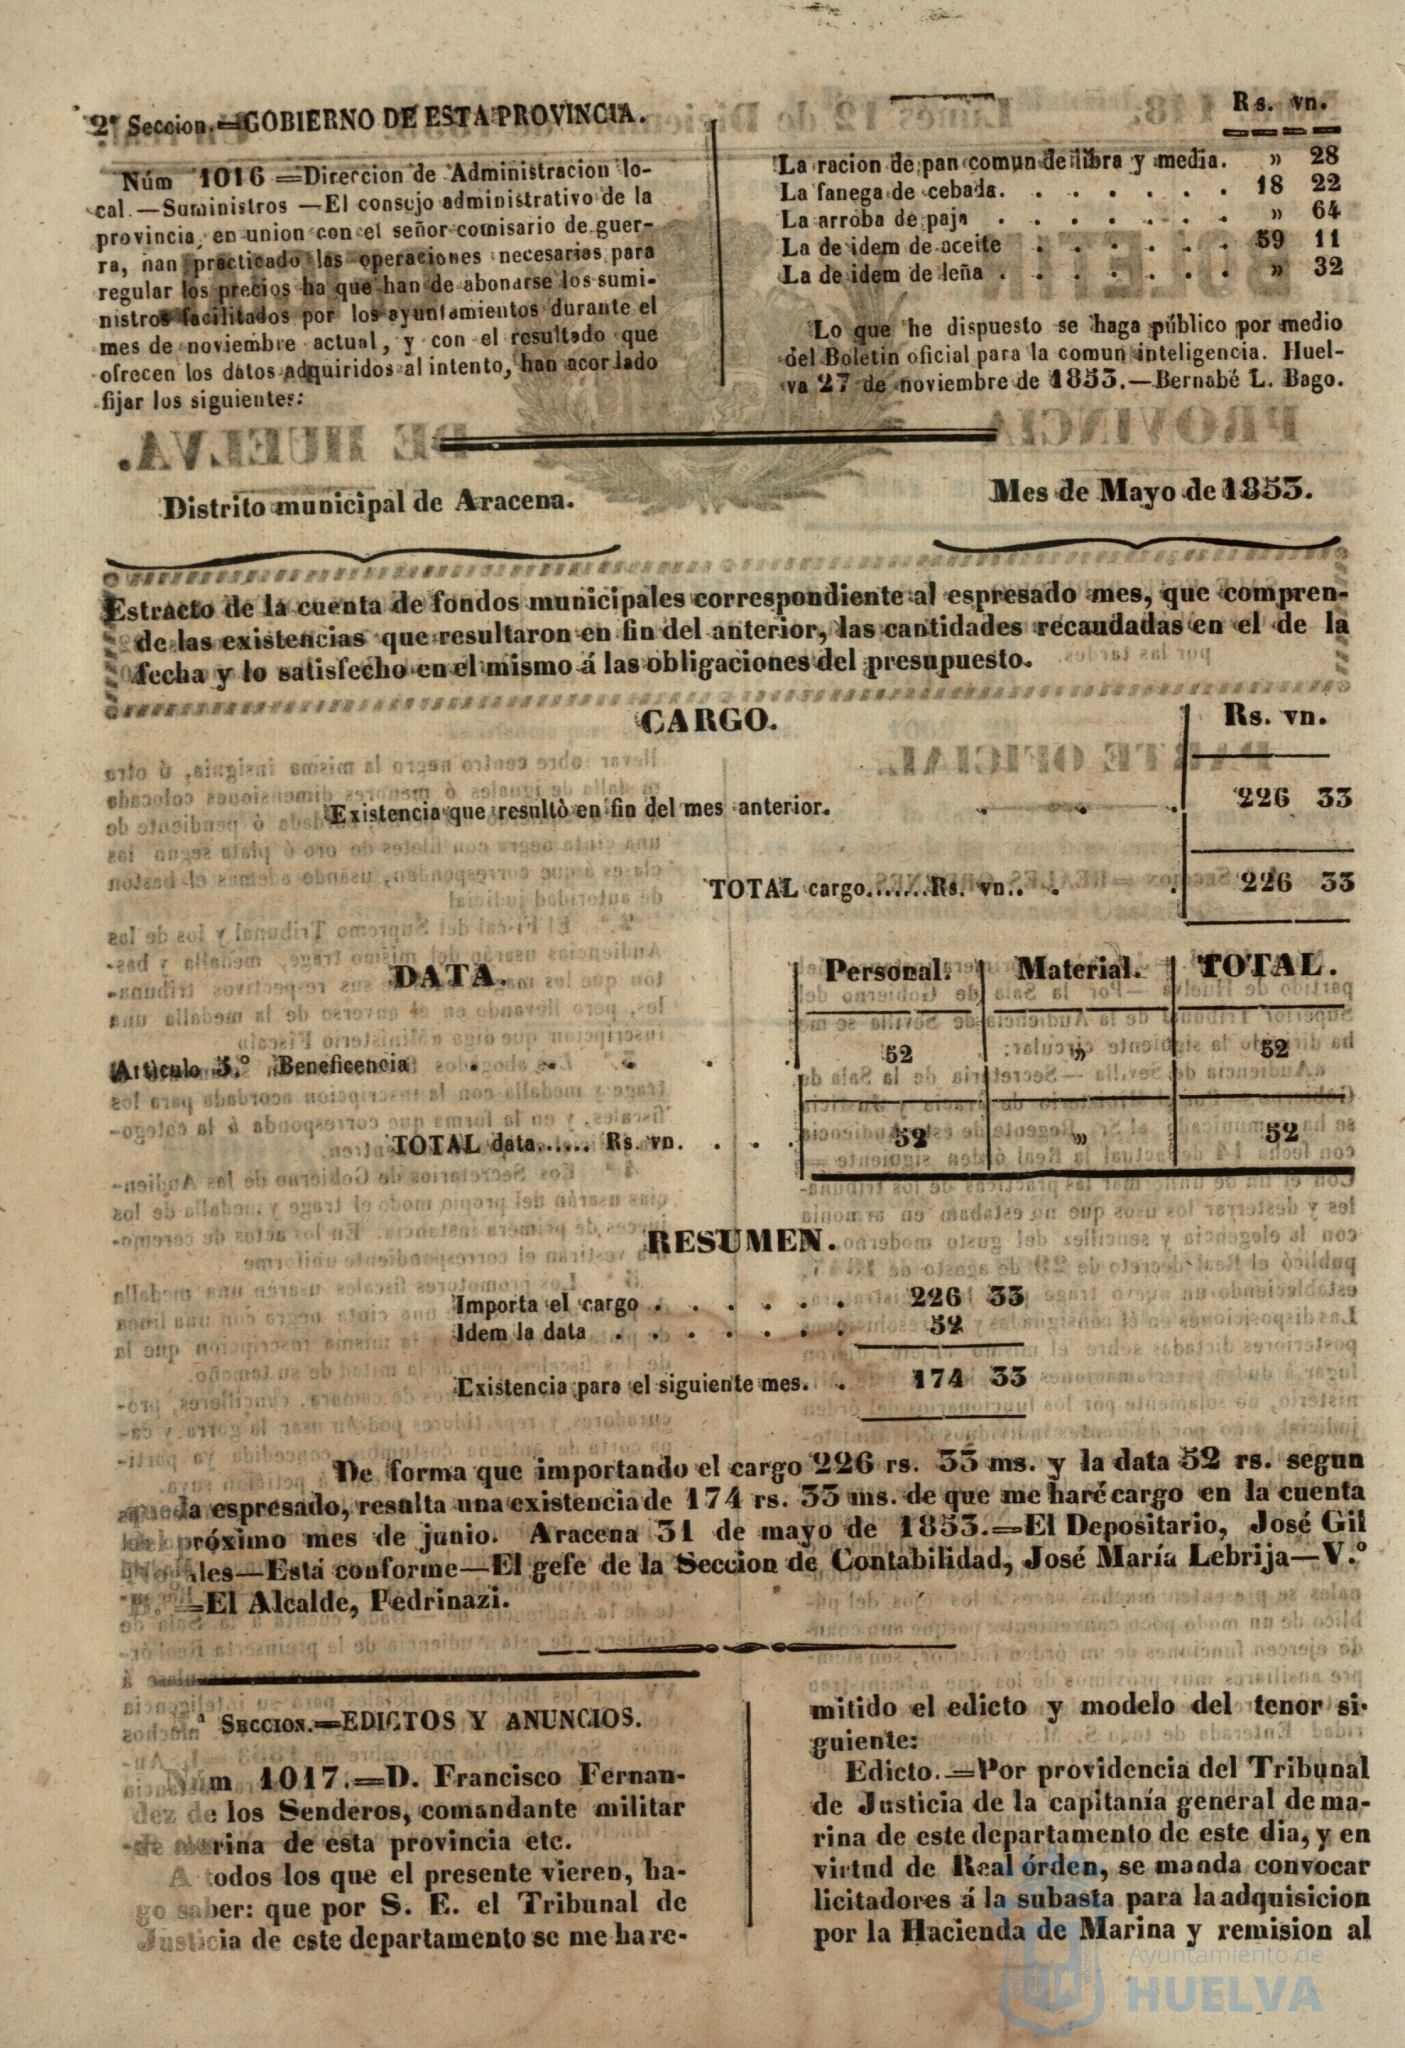 2ª Seccion.=GOBIERNO DE ESTA PROVINCIA.
Núm 1016 =Direccion de Administracion lo-
cal.—Suministros —El consejo administrativo de la
provincia, en union con el señor comisario de guer-
ra, han practicado las operaciones necesarias para
regular los precios ha que han de abonarse los sumi-
nistros facilitados por los ayuntamientos durante el
mes de noviembre actual, y con el resultado que
ofrecen los datos adquiridos al intento, han acordado
fijar los siguientes:
Rs. vn.
La racion de pan comun de libra y media. » 28
La fanega de cebada. . . . . . . 18 22
La arroba de paja . . . . . . . » 64
La de idem de aceite . . . . . . 59 11
La de idem de leña . . . . . . . » 32
Lo que he dispuesto se haga público por medio
del Boletin oficial para la comun inteligencia. Huel-
va 27 de noviembre de 1853.—Bernabé L. Bago.
Distrito municipal de Aracena.
Mes de Mayo de 1853.
Estracto de la cuenta de fondos municipales correspondiente al espresado mes, que compren-
de las existencias que resultaron en fin del anterior, las cantidades recaudadas en el de la
fecha y lo satisfecho en el mismo á las obligaciones del presupuesto.
CARGO.
Rs. vn.
Existencia que resultò en fin del mes anterior. . . . 226 33
TOTAL cargo.......Rs. vn.. . . 226 33
DATA.
Personal. Material. TOTAL.
Articulo 5.º Beneficencia . . . . 52 » 52
TOTAL data...... Rs. vn. . . . 52 » 52
RESUMEN.
Importa el cargo . . . . . . 226 33
Idem la data . . . . . . . 52
Existencia para el siguiente mes. . 174 33
De forma que importando el cargo 226 rs. 33 ms. y la data 52 rs. segun
queda espresado, resulta una existencia de 174 rs. 33 ms. de que me haré cargo en la cuenta
del próximo mes de junio. Aracena 31 de mayo de 1853.=El Depositario, José Gil
—Está conforme—El gefe de la Seccion de Contabilidad, José María Lebrija—V.º
B.º =El Alcalde, Pedrinazi.
ª SECCION.=EDICTOS Y ANUNCIOS.
Núm 1017.=D. Francisco Fernan-
dez de los Senderos, comandante militar
de marina de esta provincia etc.
A todos los que el presente vieren, ha-
go saber: que por S. E. el Tribunal de
Justicia de este departamento se me ha re-
mitido el edicto y modelo del tenor si-
guiente:
Edicto.=Por providencia del Tribunal
de Justicia de la capitanía general de ma-
rina de este departamento de este dia, y en
virtud de Real órden, se manda convocar
licitadores á la subasta para la adquisicion
por la Hacienda de Marina y remision al
Ayuntamiento de
HUELVA